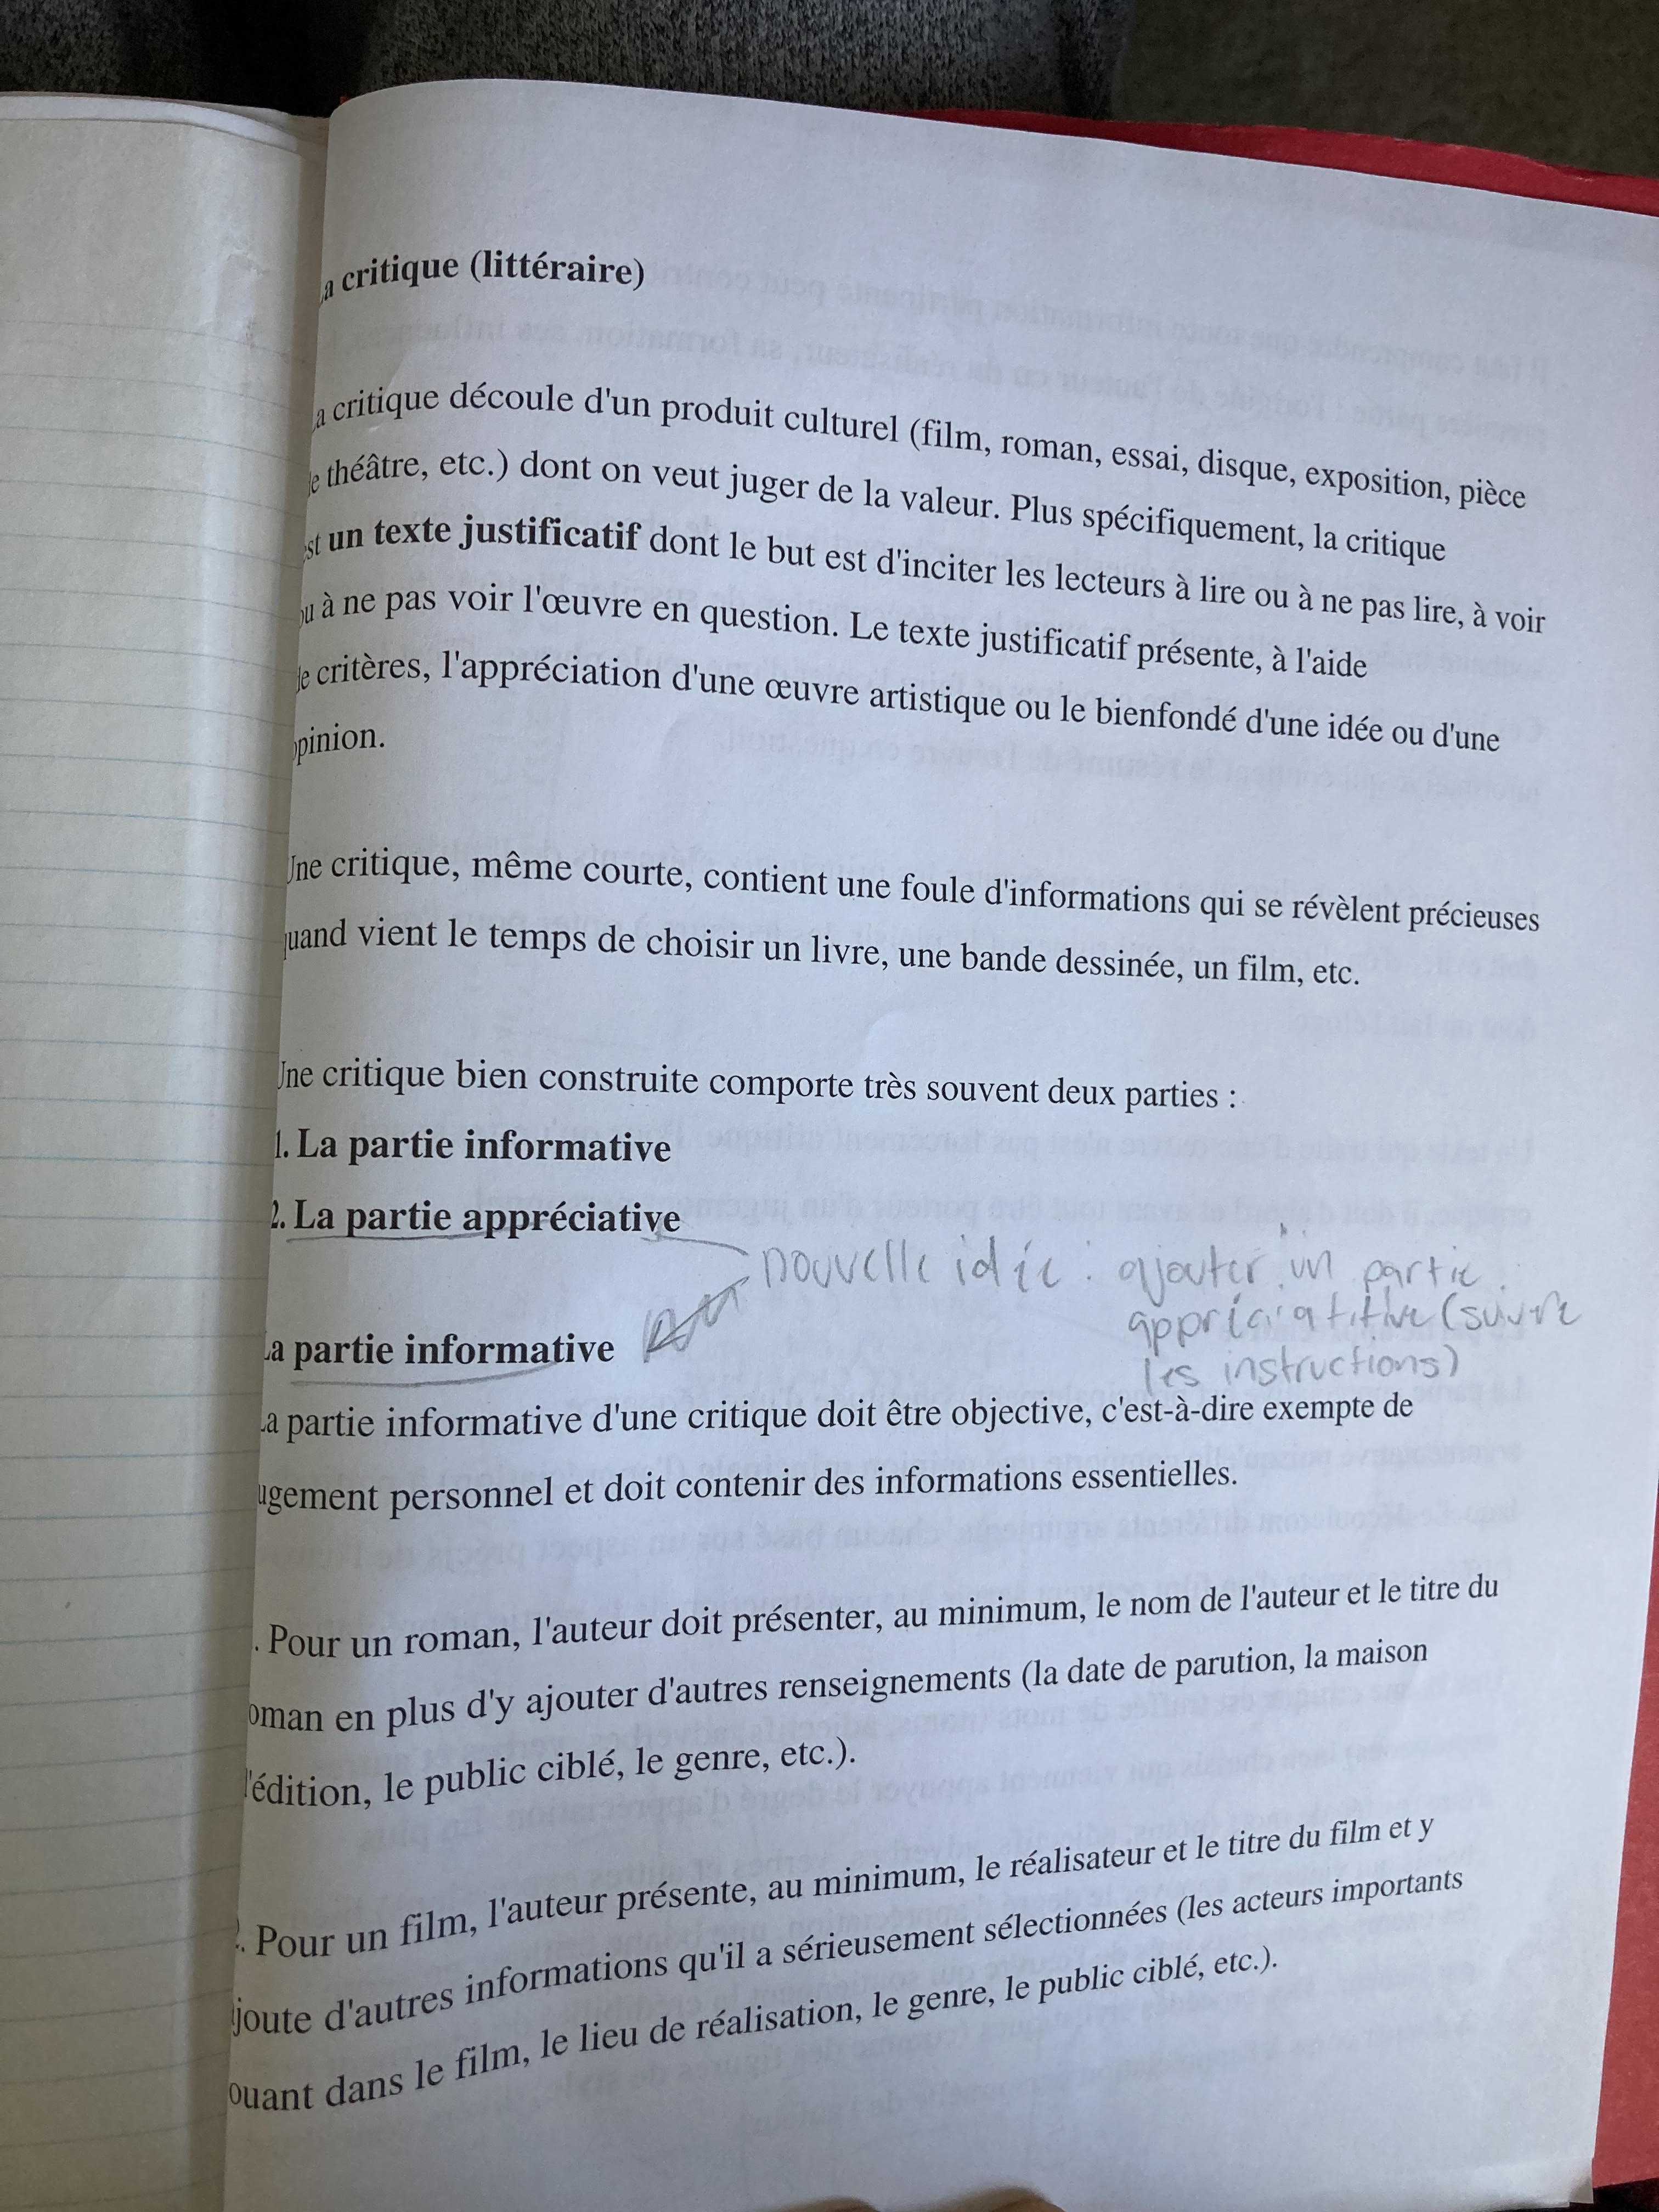 a critique (littéraire)
a critique découle d'un produit culturel (film, roman, essai, disque, exposition, pièce
e théâtre, etc.) dont on veut juger de la valeur. Plus spécifiquement, la critique
st un texte justificatif dont le but est d'inciter les lecteurs à lire ou à ne pas lire, à voir
u à ne pas voir l'œuvre en question. Le texte justificatif présente, à l'aide
e critères, l'appréciation d'une œuvre artistique ou le bienfondé d'une idée ou d'une
pinion.
Une critique, même courte, contient une foule d'informations qui se révèlent précieuses
quand vient le temps de choisir un livre, une bande dessinée, un film, etc.
Une critique bien construite comporte très souvent deux parties :
1. La partie informative
2. La partie appréciative
nouvelle idée : ajouter un partie
appréciatitive (suivre
les instructions)
La partie informative
La partie informative d'une critique doit être objective, c'est-à-dire exempte de
ugement personnel et doit contenir des informations essentielles.
. Pour un roman, l'auteur doit présenter, au minimum, le nom de l'auteur et le titre du
oman en plus d'y ajouter d'autres renseignements (la date de parution, la maison
'édition, le public ciblé, le genre, etc.).
. Pour un film, l'auteur présente, au minimum, le réalisateur et le titre du film et y
joute d'autres informations qu'il a sérieusement sélectionnées (les acteurs importants
ouant dans le film, le lieu de réalisation, le genre, le public ciblé, etc.).